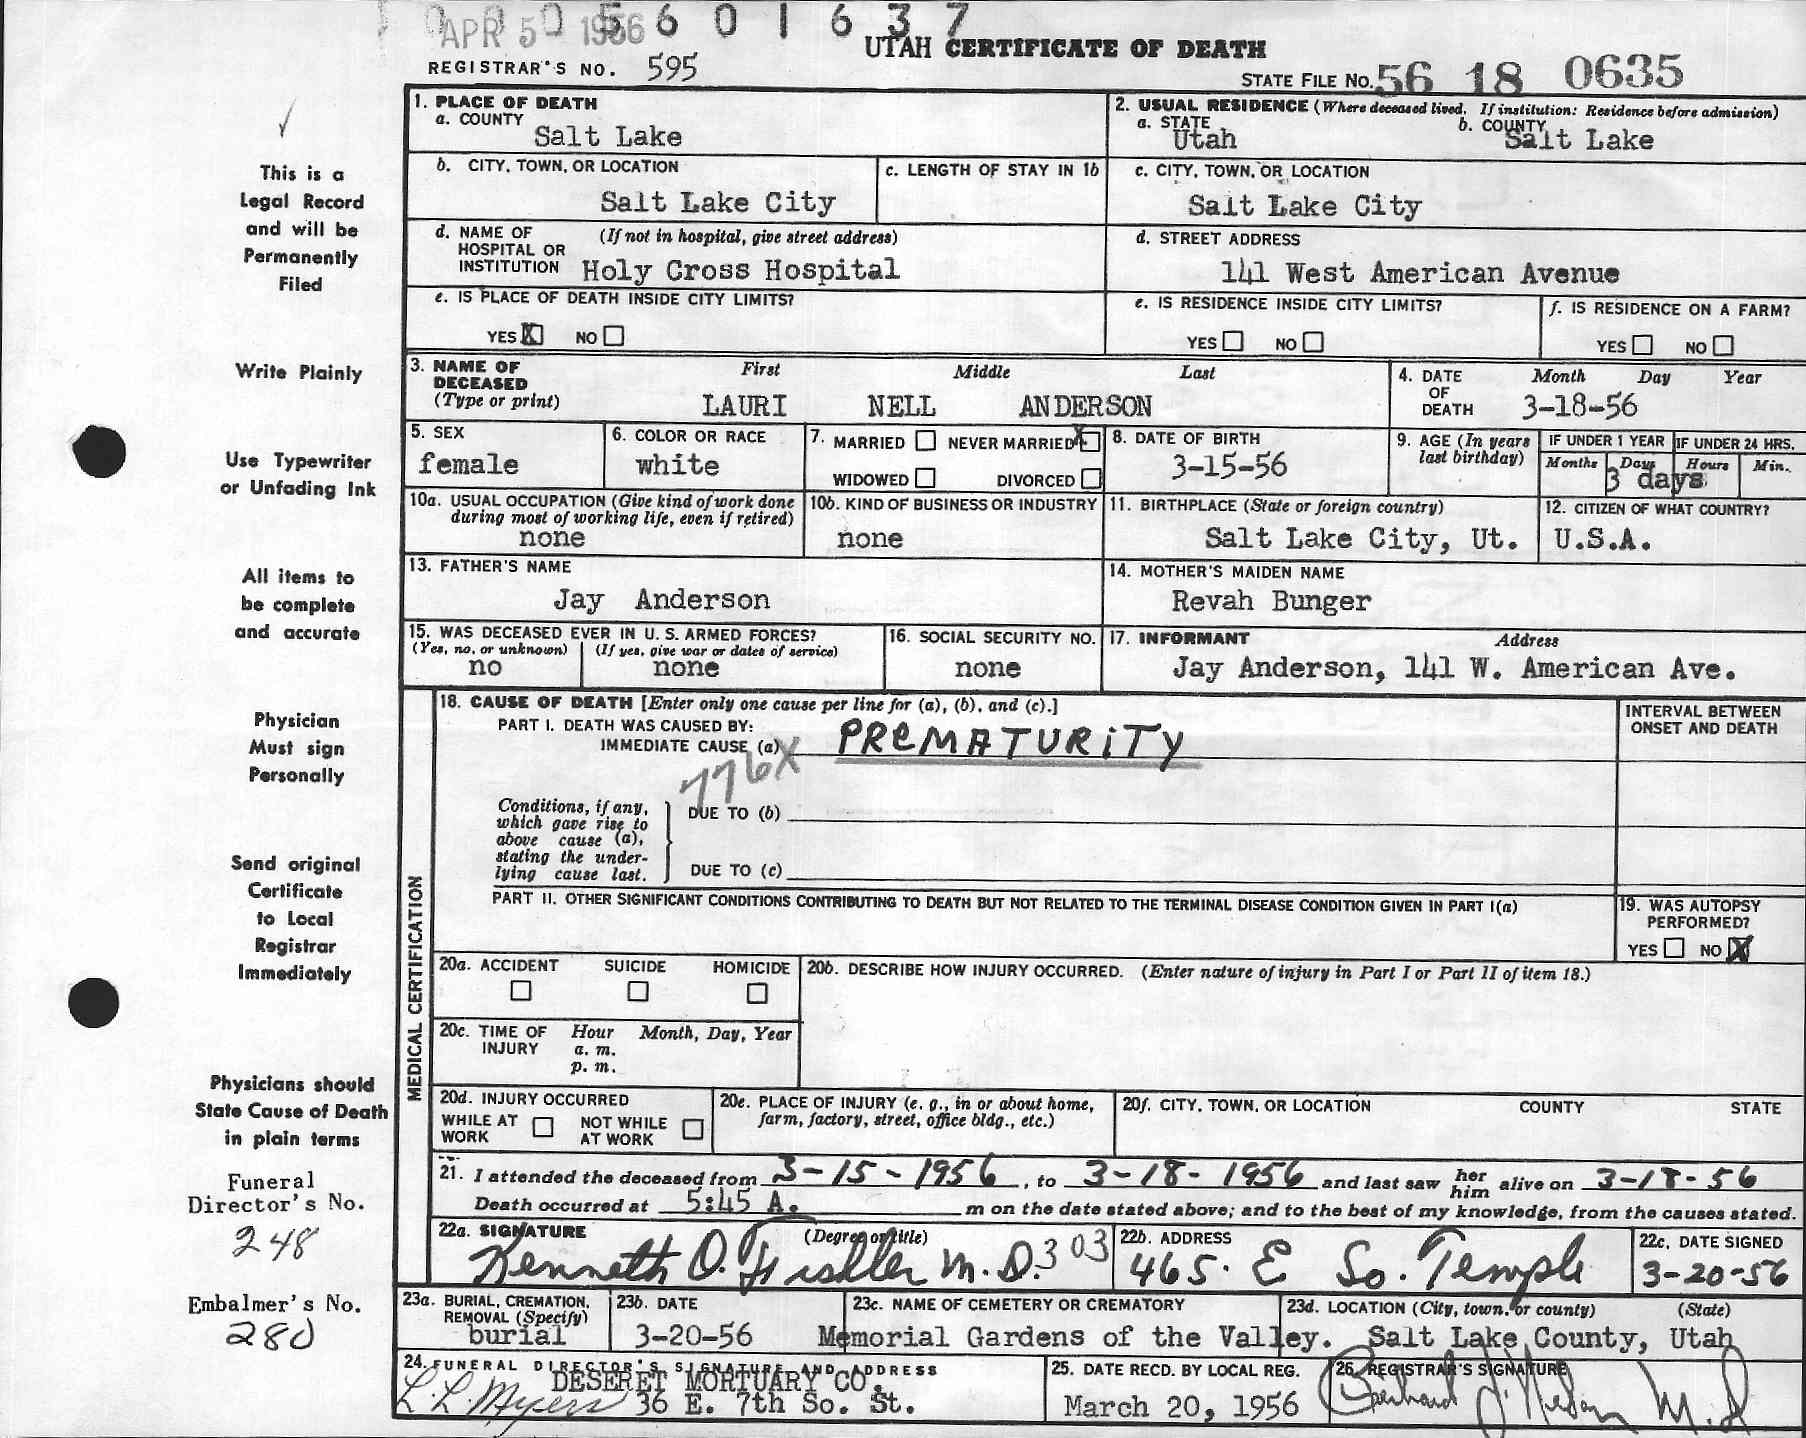 0 0 5 6 0 1 6 3 7
APR 5 1956
UTAH CERTIFICATE OF DEATH
REGISTRAR'S NO. 595
STATE FILE NO. 56 18 0635
1. PLACE OF DEATH
a. COUNTY
Salt Lake
2. USUAL RESIDENCE (Where deceased lived. If institution: Residence before admission)
a. STATE
Utah
b. COUNTY
Salt Lake
b. CITY, TOWN, OR LOCATION
Salt Lake City
c. LENGTH OF STAY IN 1b
c. CITY, TOWN, OR LOCATION
Salt Lake City
d. NAME OF HOSPITAL OR INSTITUTION
(If not in hospital, give street address)
Holy Cross Hospital
d. STREET ADDRESS
141 West American Avenue
e. IS PLACE OF DEATH INSIDE CITY LIMITS?
YES X NO
e. IS RESIDENCE INSIDE CITY LIMITS?
YES NO
f. IS RESIDENCE ON A FARM?
YES NO
3. NAME OF DECEASED
(Type or print)
First Middle Last
LAURI NELL ANDERSON
4. DATE OF DEATH
Month Day Year
3-18-56
5. SEX
female
6. COLOR OR RACE
white
7. MARRIED NEVER MARRIED X
WIDOWED DIVORCED
8. DATE OF BIRTH
3-15-56
9. AGE (In years last birthday)
IF UNDER 1 YEAR
Months Days
IF UNDER 24 HRS.
Hours Min.
3 days
10a. USUAL OCCUPATION (Give kind of work done during most of working life, even if retired)
none
10b. KIND OF BUSINESS OR INDUSTRY
none
11. BIRTHPLACE (State or foreign country)
Salt Lake City, Ut.
12. CITIZEN OF WHAT COUNTRY?
U.S.A.
13. FATHER'S NAME
Jay Anderson
14. MOTHER'S MAIDEN NAME
Revah Bunger
15. WAS DECEASED EVER IN U. S. ARMED FORCES?
(Yes, no, or unknown) (If yes, give war or dates of service)
no none
16. SOCIAL SECURITY NO.
none
17. INFORMANT Address
Jay Anderson, 141 W. American Ave.
MEDICAL CERTIFICATION
18. CAUSE OF DEATH [Enter only one cause per line for (a), (b), and (c).]
PART I. DEATH WAS CAUSED BY:
IMMEDIATE CAUSE (a) PREMATURITY
776X
INTERVAL BETWEEN ONSET AND DEATH
Conditions, if any, which gave rise to above cause (a), stating the underlying cause last.
DUE TO (b)
DUE TO (c)
PART II. OTHER SIGNIFICANT CONDITIONS CONTRIBUTING TO DEATH BUT NOT RELATED TO THE TERMINAL DISEASE CONDITION GIVEN IN PART I(a)
19. WAS AUTOPSY PERFORMED?
YES NO X
20a. ACCIDENT SUICIDE HOMICIDE
20b. DESCRIBE HOW INJURY OCCURRED. (Enter nature of injury in Part I or Part II of item 18.)
20c. TIME OF INJURY
Hour Month, Day, Year
a. m.
p. m.
20d. INJURY OCCURRED
WHILE AT WORK NOT WHILE AT WORK
20e. PLACE OF INJURY (e. g., in or about home, farm, factory, street, office bldg., etc.)
20f. CITY, TOWN, OR LOCATION COUNTY STATE
21. I attended the deceased from 3-15-1956, to 3-18-1956 and last saw her him alive on 3-18-56
Death occurred at 5:45 A. m on the date stated above; and to the best of my knowledge, from the causes stated.
22a. SIGNATURE (Degree or title)
Kenneth O. M.D. 303
22b. ADDRESS
465. E So. Temple
22c. DATE SIGNED
3-20-56
23a. BURIAL, CREMATION, REMOVAL (Specify)
burial
23b. DATE
3-20-56
23c. NAME OF CEMETERY OR CREMATORY
Memorial Gardens of the Valley.
23d. LOCATION (City, town, or county) (State)
Salt Lake County, Utah
24. FUNERAL DIRECTOR'S SIGNATURE AND ADDRESS
DESERET MORTUARY CO.
L. L. Myers 36 E. 7th So. St.
25. DATE RECD. BY LOCAL REG.
March 20, 1956
26. REGISTRAR'S SIGNATURE
M.D
This is a
Legal Record
and will be
Permanently
Filed
Write Plainly
Use Typewriter
or Unfading Ink
All items to
be complete
and accurate
Physician
Must sign
Personally
Send original
Certificate
to Local
Registrar
Immediately
Physicians should
State Cause of Death
in plain terms
Funeral
Director's No.
248
Embalmer's No.
280